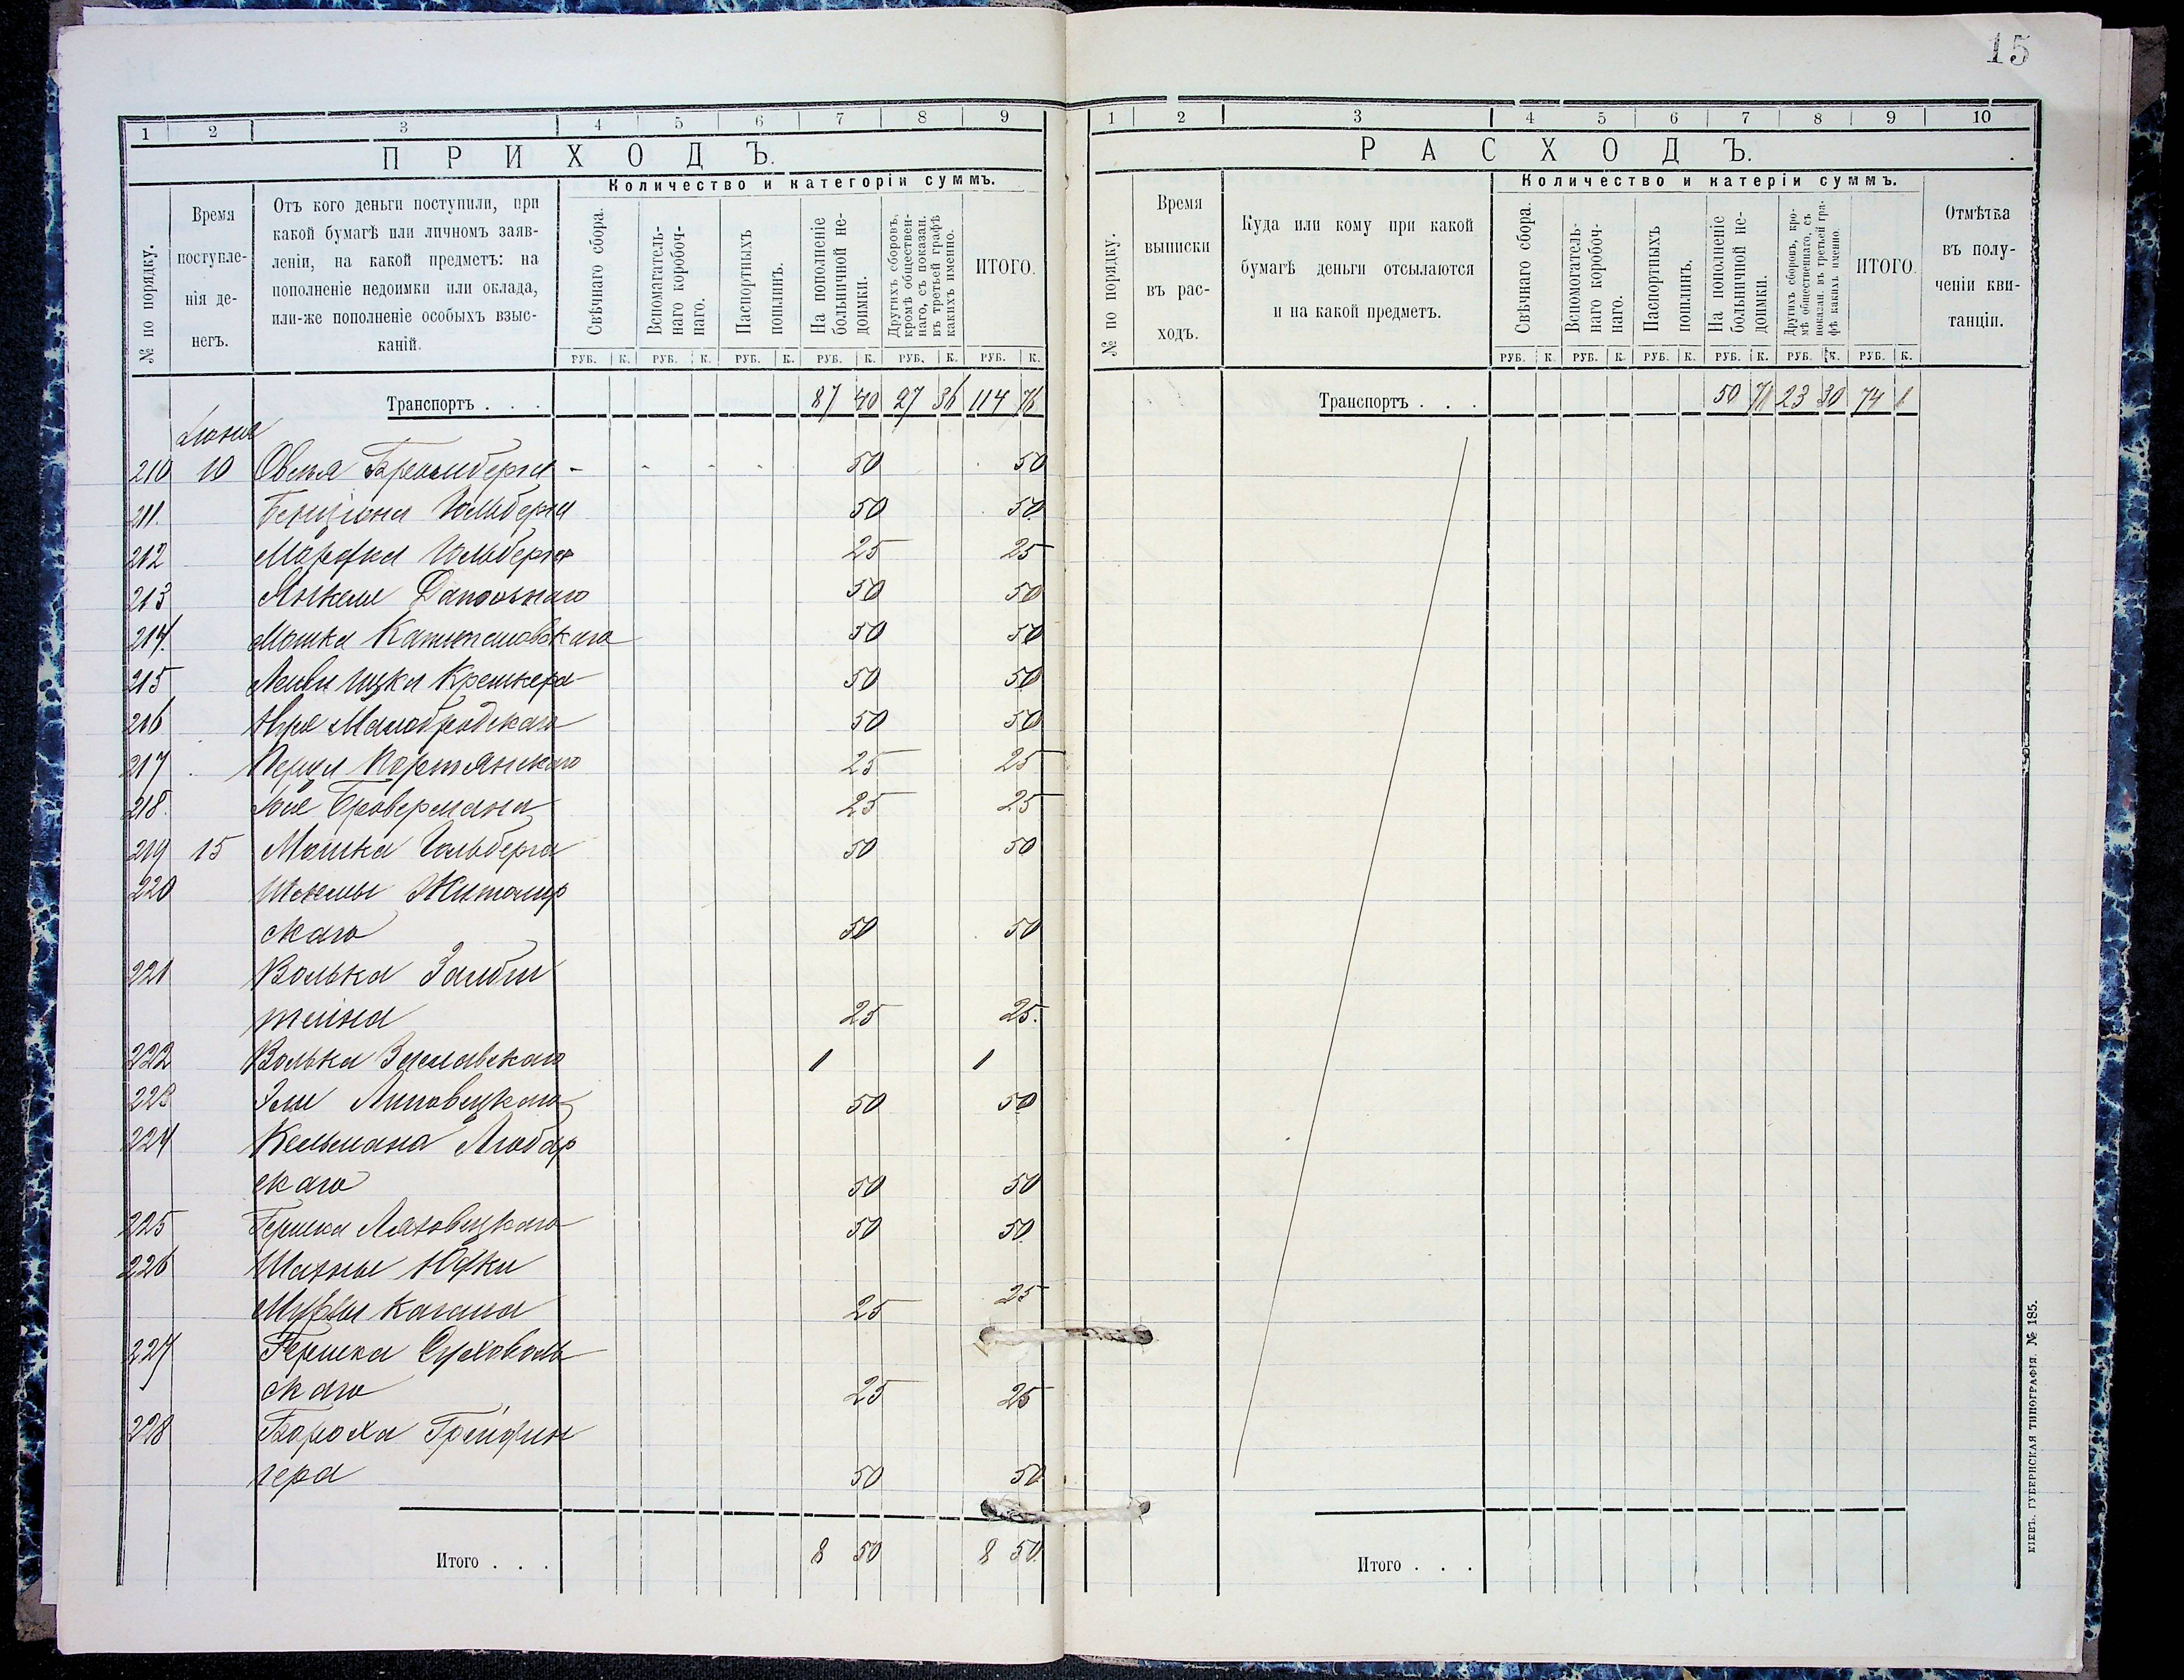 15
1 2 3 4 5 6 7 8 9
ПРИХОДЪ.
Количество и категоріи суммъ.
№ по порядку.
Время
поступле-
нія де-
негъ.
Отъ кого деньги поступили, при
какой бумагѣ или личномъ заяв-
леніи, на какой предметъ: на
пополненіе недоимки или оклада,
или-же пополненіе особыхъ взыс-
каній.
Свѣчнаго сбора.
Вспомагатель-
наго коробоч-
наго.
Паспортныхъ
пошлинъ.
На пополненіе
больничной не-
доимки.
Другихъ сборовъ,
кромѣ обществен-
наго, съ показан.
въ третьей графѣ
какихъ именно.
ИТОГО.
РУБ. К. РУБ. К. РУБ. К. РУБ. К. РУБ. К. РУБ. К.
Транспортъ . . . 87 40 27 36 114 76
Іюня
210 10 Овсея 50 50
211. Бенціона Гольберга 50 50
212 Мордка Гольберга 25 25
213 Янкеля 50 50
214. Мошка 50 50
215 Лейви Ицка Кремнера 50 50
216 Малобродскаго 50 50
217 Портянскаго 25 25
218. Бровермана 25 25
219 15 Мошка Гольберга 50 50
220 Житомир
скаго 50 50
221 Волька
тейна 25 25.
222 Волька Заславскаго 1 1
223 Эли Липовецкаго 50 50
224 Кельмана Любар
скаго 50 50
225 Гершка Ляховецкаго 50 50
226 Шахны Юдки
Кагана 25 25
227 Гершка Суховоль
скаго 25 25
228 Бороха Грейдин
гера 50 50
Итого . . . 8 50 8 50
1 2 3 4 5 6 7 8 9 10
РАСХОДЪ.
Количество и катеріи суммъ.
№ по порядку.
Время
выписки
въ рас-
ходъ.
Куда или кому при какой
бумагѣ деньги отсылаются
и на какой предметъ.
Свѣчнаго сбора.
Вспомогатель-
наго коробоч-
наго.
Паспортныхъ
пошлинъ.
На пополненіе
больничной не-
доимки.
Другихъ сборовъ, кро-
мѣ общественнаго, съ
показан. въ третьей гра-
фѣ какихъ именно.
ИТОГО.
Отмѣтка
въ полу-
ченіи кви-
танціи.
РУБ. К. РУБ. К. РУБ. К. РУБ. К. РУБ. К. РУБ. К.
Транспортъ . . . 50 71 23 30 74 1
Итого . . .
КІЕВЪ. ГУБЕРНСКАЯ ТИПОГРАФІЯ. № 185.